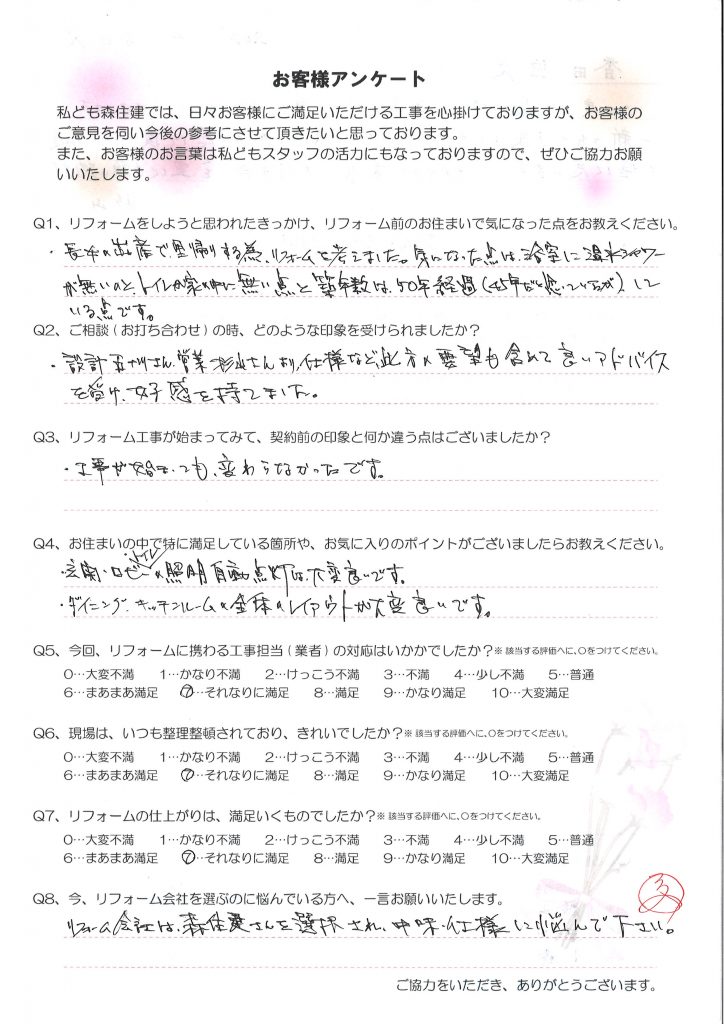 お客様アンケート
私ども森住建では、日々お客様にご満足いただける工事を心掛けておりますが、お客様の
ご意見を伺い今後の参考にさせて頂きたいと思っております。
また、お客様のお言葉は私どもスタッフの活力にもなっておりますので、ぜひご協力お願
いいたします。
Q1、リフォームをしようと思われたきっかけ、リフォーム前のお住まいで気になった点をお教えください。
・長女の出産で里帰りする為、リフォームを考えました。気になった点は、浴室に温水シャワー
が無いのと、トイレが家の中に無い点と築年数は、50年経過(45年だと思っていたが)して
いる点です。
Q2、ご相談(お打ち合わせ)の時、どのような印象を受けられましたか?
・設計 さん、営業 さんより、仕様など、此方の要望も含めて良いアドバイス
を受け、好感を持てました。
Q3、リフォーム工事が始まってみて、契約前の印象と何か違う点はございましたか?
・工事が始まっても、変わらなかったです。
Q4、お住まいの中で特に満足している箇所や、お気に入りのポイントがございましたらお教えください。
・玄関・ロビー・トイレの照明自動点灯は、大変良いです。
・ダイニング、キッチンルームの全体のレイアウトが大変良いです。
Q5、今回、リフォームに携わる工事担当(業者)の対応はいかかでしたか?※該当する評価へに、○をつけてください。
0…大変不満 1…かなり不満 2…けっこう不満 3…不満 4…少し不満 5…普通
6…まあまあ満足 7…それなりに満足 8…満足 9…かなり満足 10…大変満足
Q6、現場は、いつも整理整頓されており、きれいでしたか?※該当する評価へに、○をつけてください。
0…大変不満 1…かなり不満 2…けっこう不満 3…不満 4…少し不満 5…普通
6…まあまあ満足 7…それなりに満足 8…満足 9…かなり満足 10…大変満足
Q7、リフォームの仕上がりは、満足いくものでしたか?※該当する評価へに、○をつけてください。
0…大変不満 1…かなり不満 2…けっこう不満 3…不満 4…少し不満 5…普通
6…まあまあ満足 7…それなりに満足 8…満足 9…かなり満足 10…大変満足
Q8、今、リフォーム会社を選ぶのに悩んでいる方へ、一言お願いいたします。
リフォーム会社は、森住建さんを選択され、中味・仕様に悩んで下さい。
ご協力をいただき、ありがとうございます。